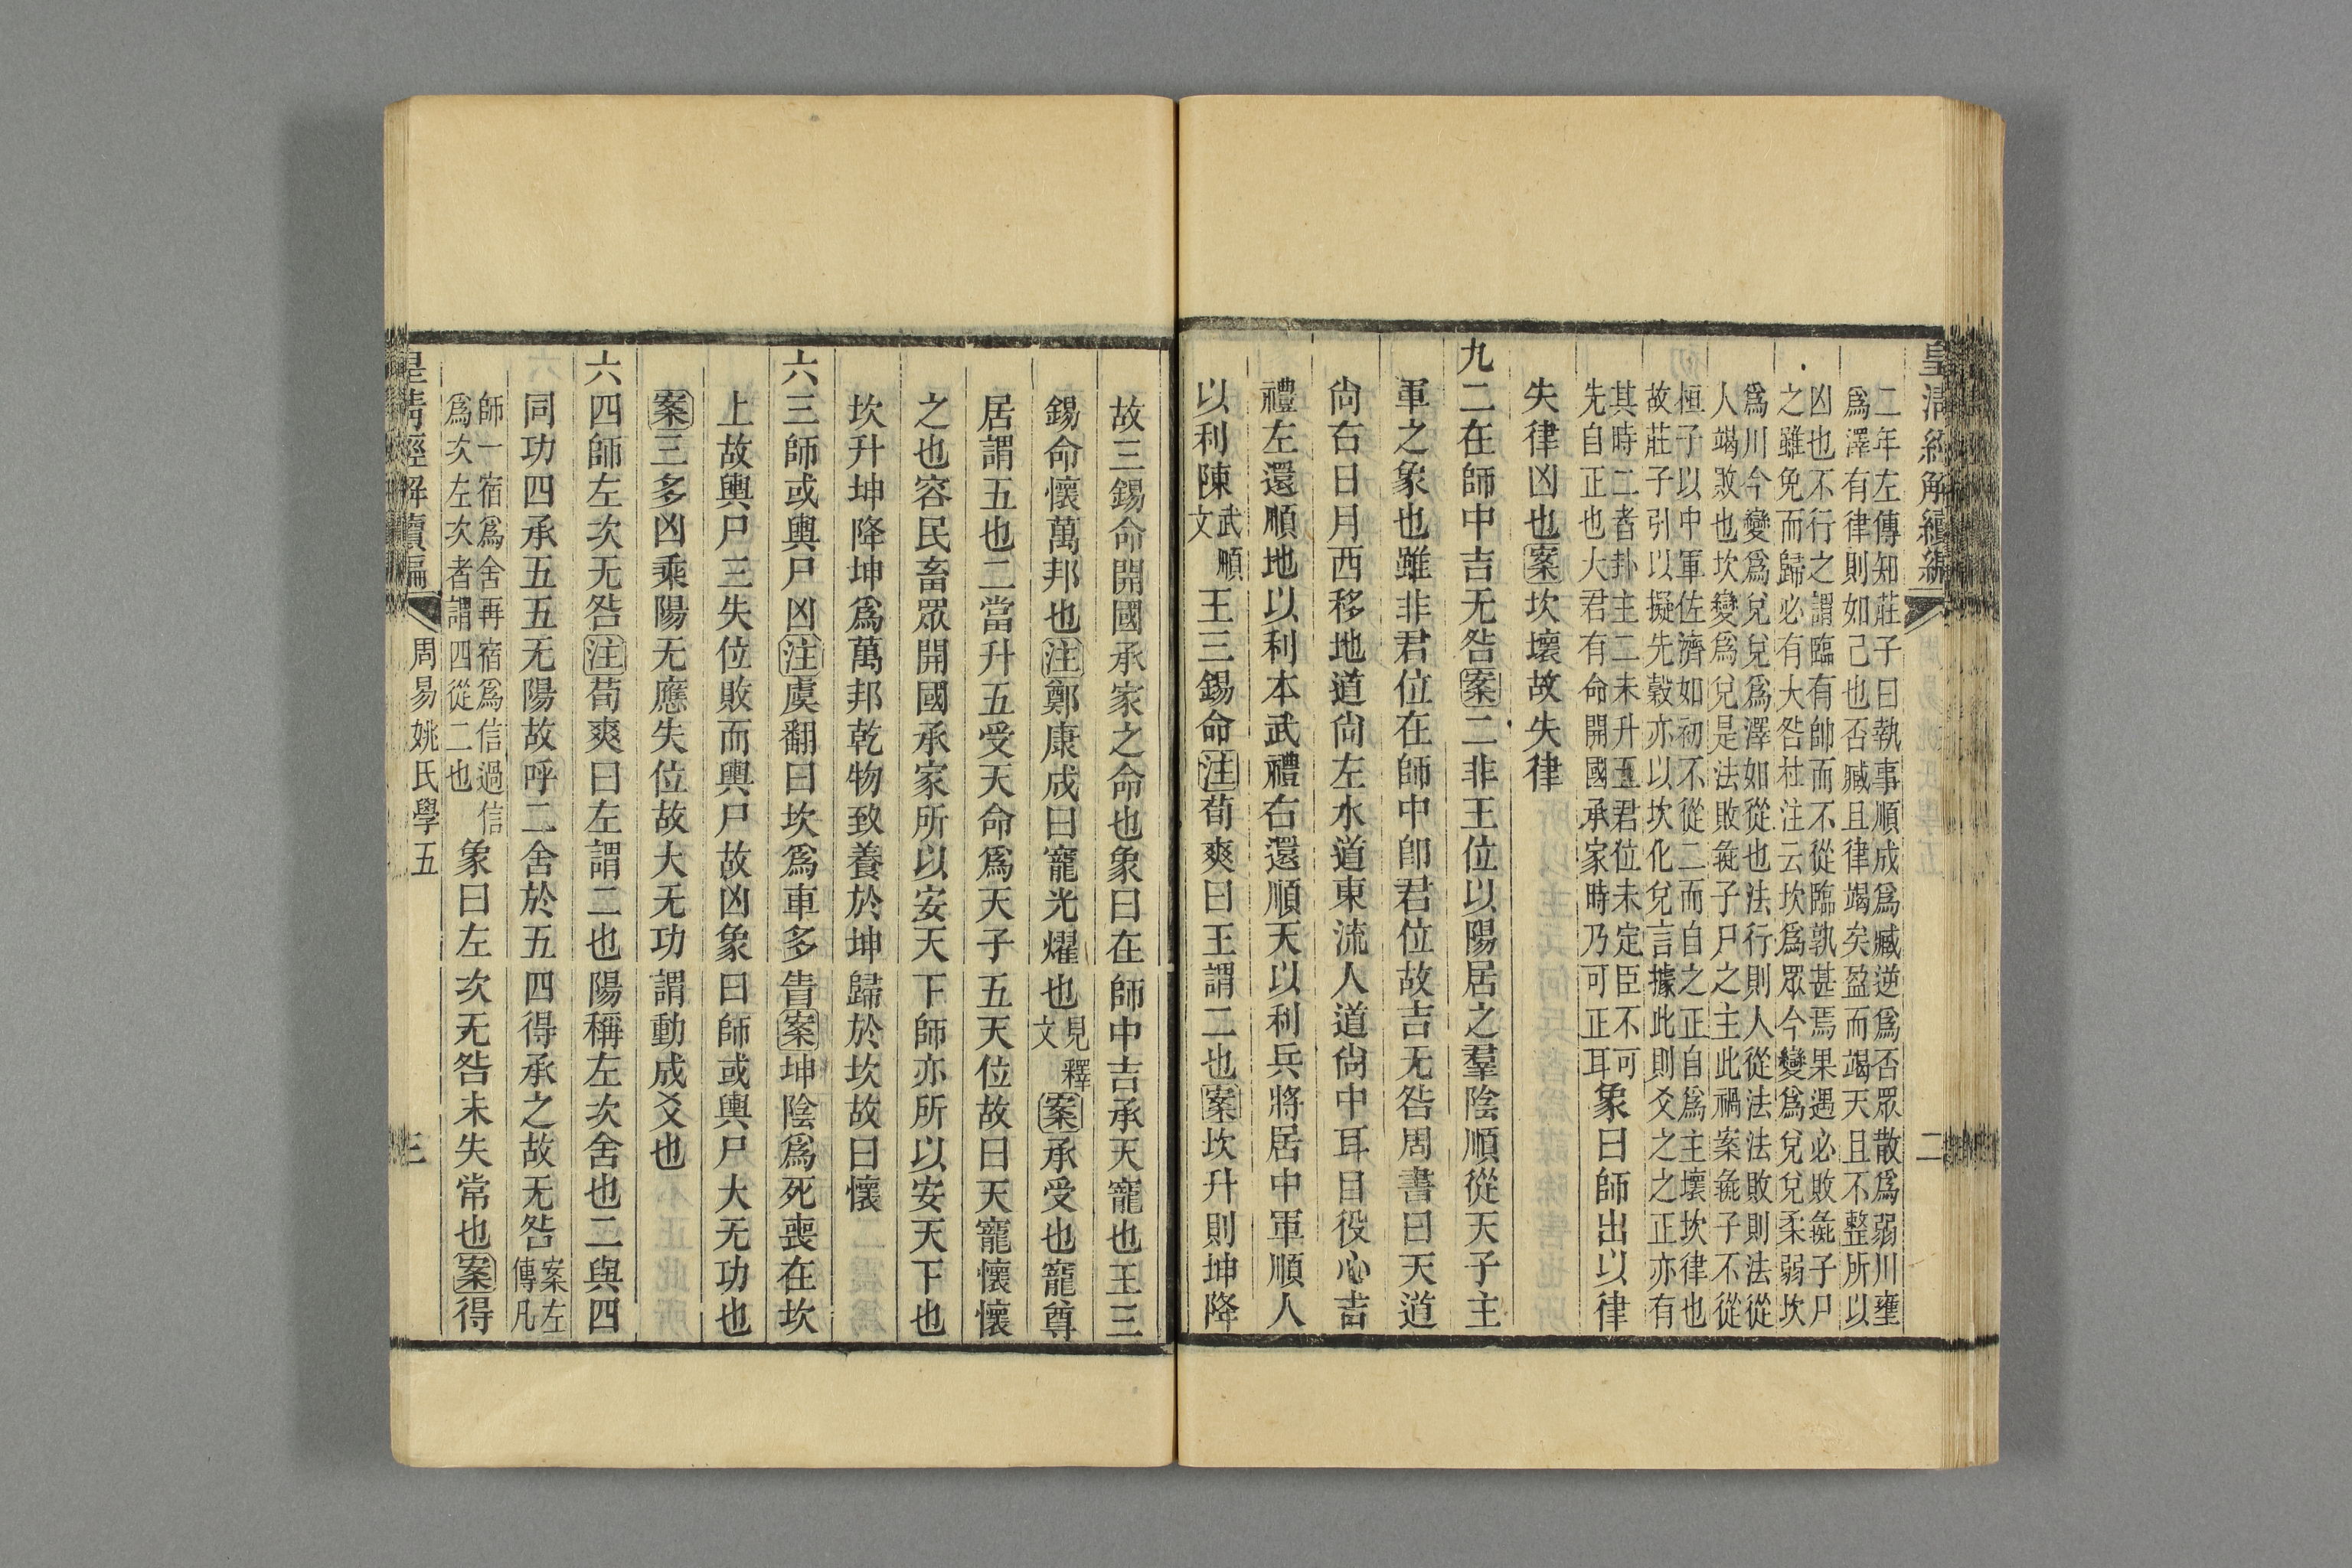 皇清經解續編
二
二年左傳知莊子曰執事順成爲臧逆爲否眾散爲弱川壅
爲澤有律則如己也否臧且律竭矣盈而竭天且不整所以
凶也不行之謂臨有帥而不從臨孰甚焉果遇必敗彘子尸
之雖免而歸必有大咎杜注云坎爲眾今變爲兌兌柔弱坎
爲川今變爲兌兌爲澤如從也法行則人從法法敗則法從
人竭敗也坎變爲兌是法敗彘子尸之主此禍案彘子不從
桓子以中軍佐濟如初不從二而自之正自爲主壞坎律也
故莊子引以擬先縠亦以坎化兌言據此則爻之之正亦有
其時二者卦主二未升五君位未定臣不可
先自正也大君有命開國承家時乃可正耳
象曰師出以律
失律凶也案坎壞故失律
九二在師中吉无咎案二非王位以陽居之羣陰順從天子主
軍之象也雖非君位在師中卽君位故吉无咎周書曰天道
尙右日月西移地道尙左水道東流人道尙中耳目役心吉
禮左還順地以利本武禮右還順天以利兵將居中軍順人
以利陳武順文王三錫命注荀爽曰王謂二也案坎升則坤降
故三錫命開國承家之命也象曰在師中吉承天寵也王三
錫命懷萬邦也注鄭康成曰寵光燿也見釋文案承受也寵尊
居謂五也二當升五受天命爲天子五天位故曰天寵懷懷
之也容民畜眾開國承家所以安天下師亦所以安天下也
坎升坤降坤爲萬邦乾物致養於坤歸於坎故曰懷
六三師或輿尸凶注虞翻曰坎爲車多眚案坤陰爲死喪在坎
上故輿尸三失位敗而輿尸故凶象曰師或輿尸大无功也
案三多凶乘陽无應失位故大无功謂動成爻也
六四師左次无咎注荀爽曰左謂二也陽稱左次舍也二與四
同功四承五五无陽故呼二舍於五四得承之故无咎案左傳凡
師一宿爲舍再宿爲信過信
爲次左次者謂四從二也
象曰左次无咎未失常也案得
皇清經解續編
周易姚氏學五
三